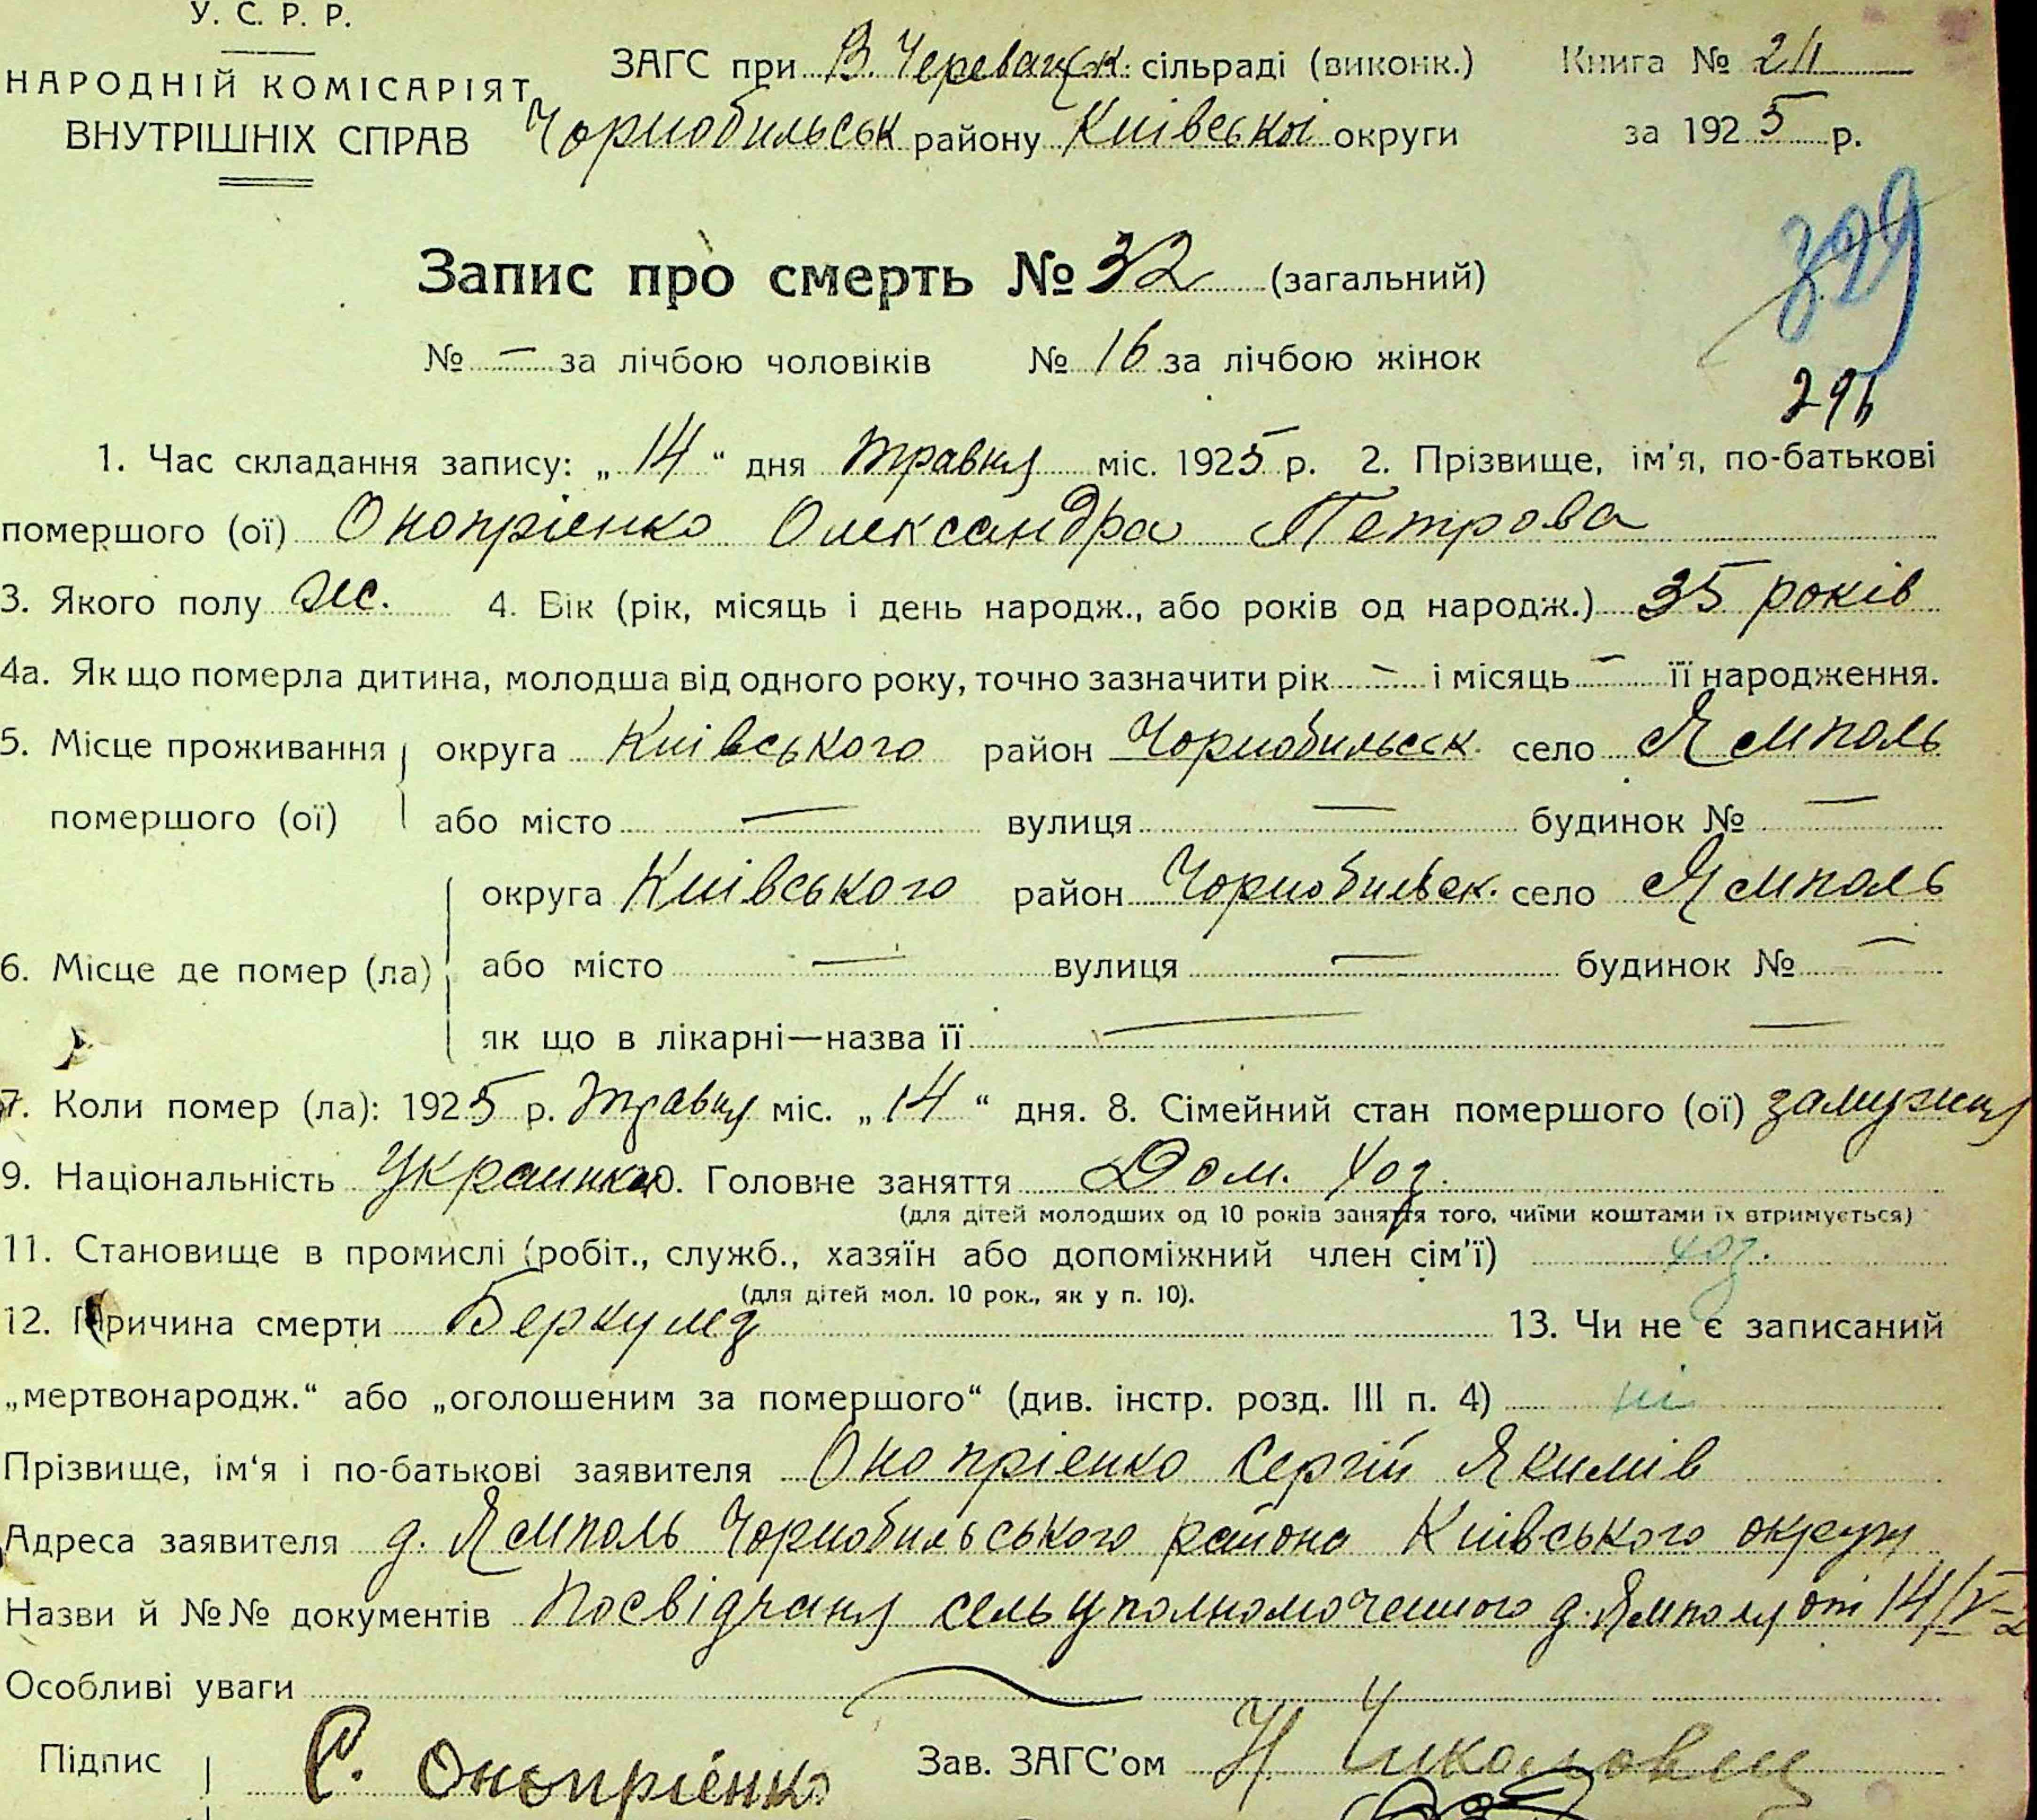 У. С. Р. Р.
НАРОДНІЙ КОМІСАРІЯТ
ВНУТРІШНІХ СПРАВ
ЗАГС при В. Черевацьк. сільраді (виконк.)
Чорнобильськ району Київської округи
Книга №
за 1925 р.
329
Запис про смерть № 32 (загальний)
№ — за лічбою чоловіків № 16 за лічбою жінок
296
1. Час складання запису: „14“ дня травня міс. 1925 р. 2. Прізвище, ім'я, по-батькові
помершого (ої) Онопрієнко Олександра Петрова
3. Якого полу ж. 4. Вік (рік, місяць і день народж., або років од народж.) 35 років
4а. Як що померла дитина, молодша від одного року, точно зазначити рік — і місяць — її народження.
5. Місце проживання помершого (ої) округа Київського район Чорнобильськ. село Ямполь
або місто — вулиця — будинок № —
6. Місце де помер (ла) округа Київського район Чорнобильск. село Ямполь
або місто — вулиця — будинок № —
як що в лікарні—назва її —
7. Коли помер (ла): 1925 р. травня міс. „14“ дня. 8. Сімейний стан помершого (ої) замужня
9. Національність Украинка 10. Головне заняття Дом. хоз.
(для дітей молодших од 10 років заняття того, чиїми коштами їх втримується)
11. Становище в промислі (робіт., служб., хазяїн або допоміжний член сім'ї) хоз.
(для дітей мол. 10 рок., як у п. 10).
12. Причина смерти Беркулез 13. Чи не є записаний
„мертвонародж.“ або „оголошеним за помершого“ (див. інстр. розд. III п. 4) ні
Прізвище, ім'я і по-батькові заявителя Онопрієнко Сергій Якимів
Адреса заявителя д. Ямполь Чорнобильського района Київського округи
Назви й №№ документів Посвідчаня сельуполномоченного д. Ямполя от 14/V
Особливі уваги
Підпис С. Онопрієнко Зав. ЗАГС'ом